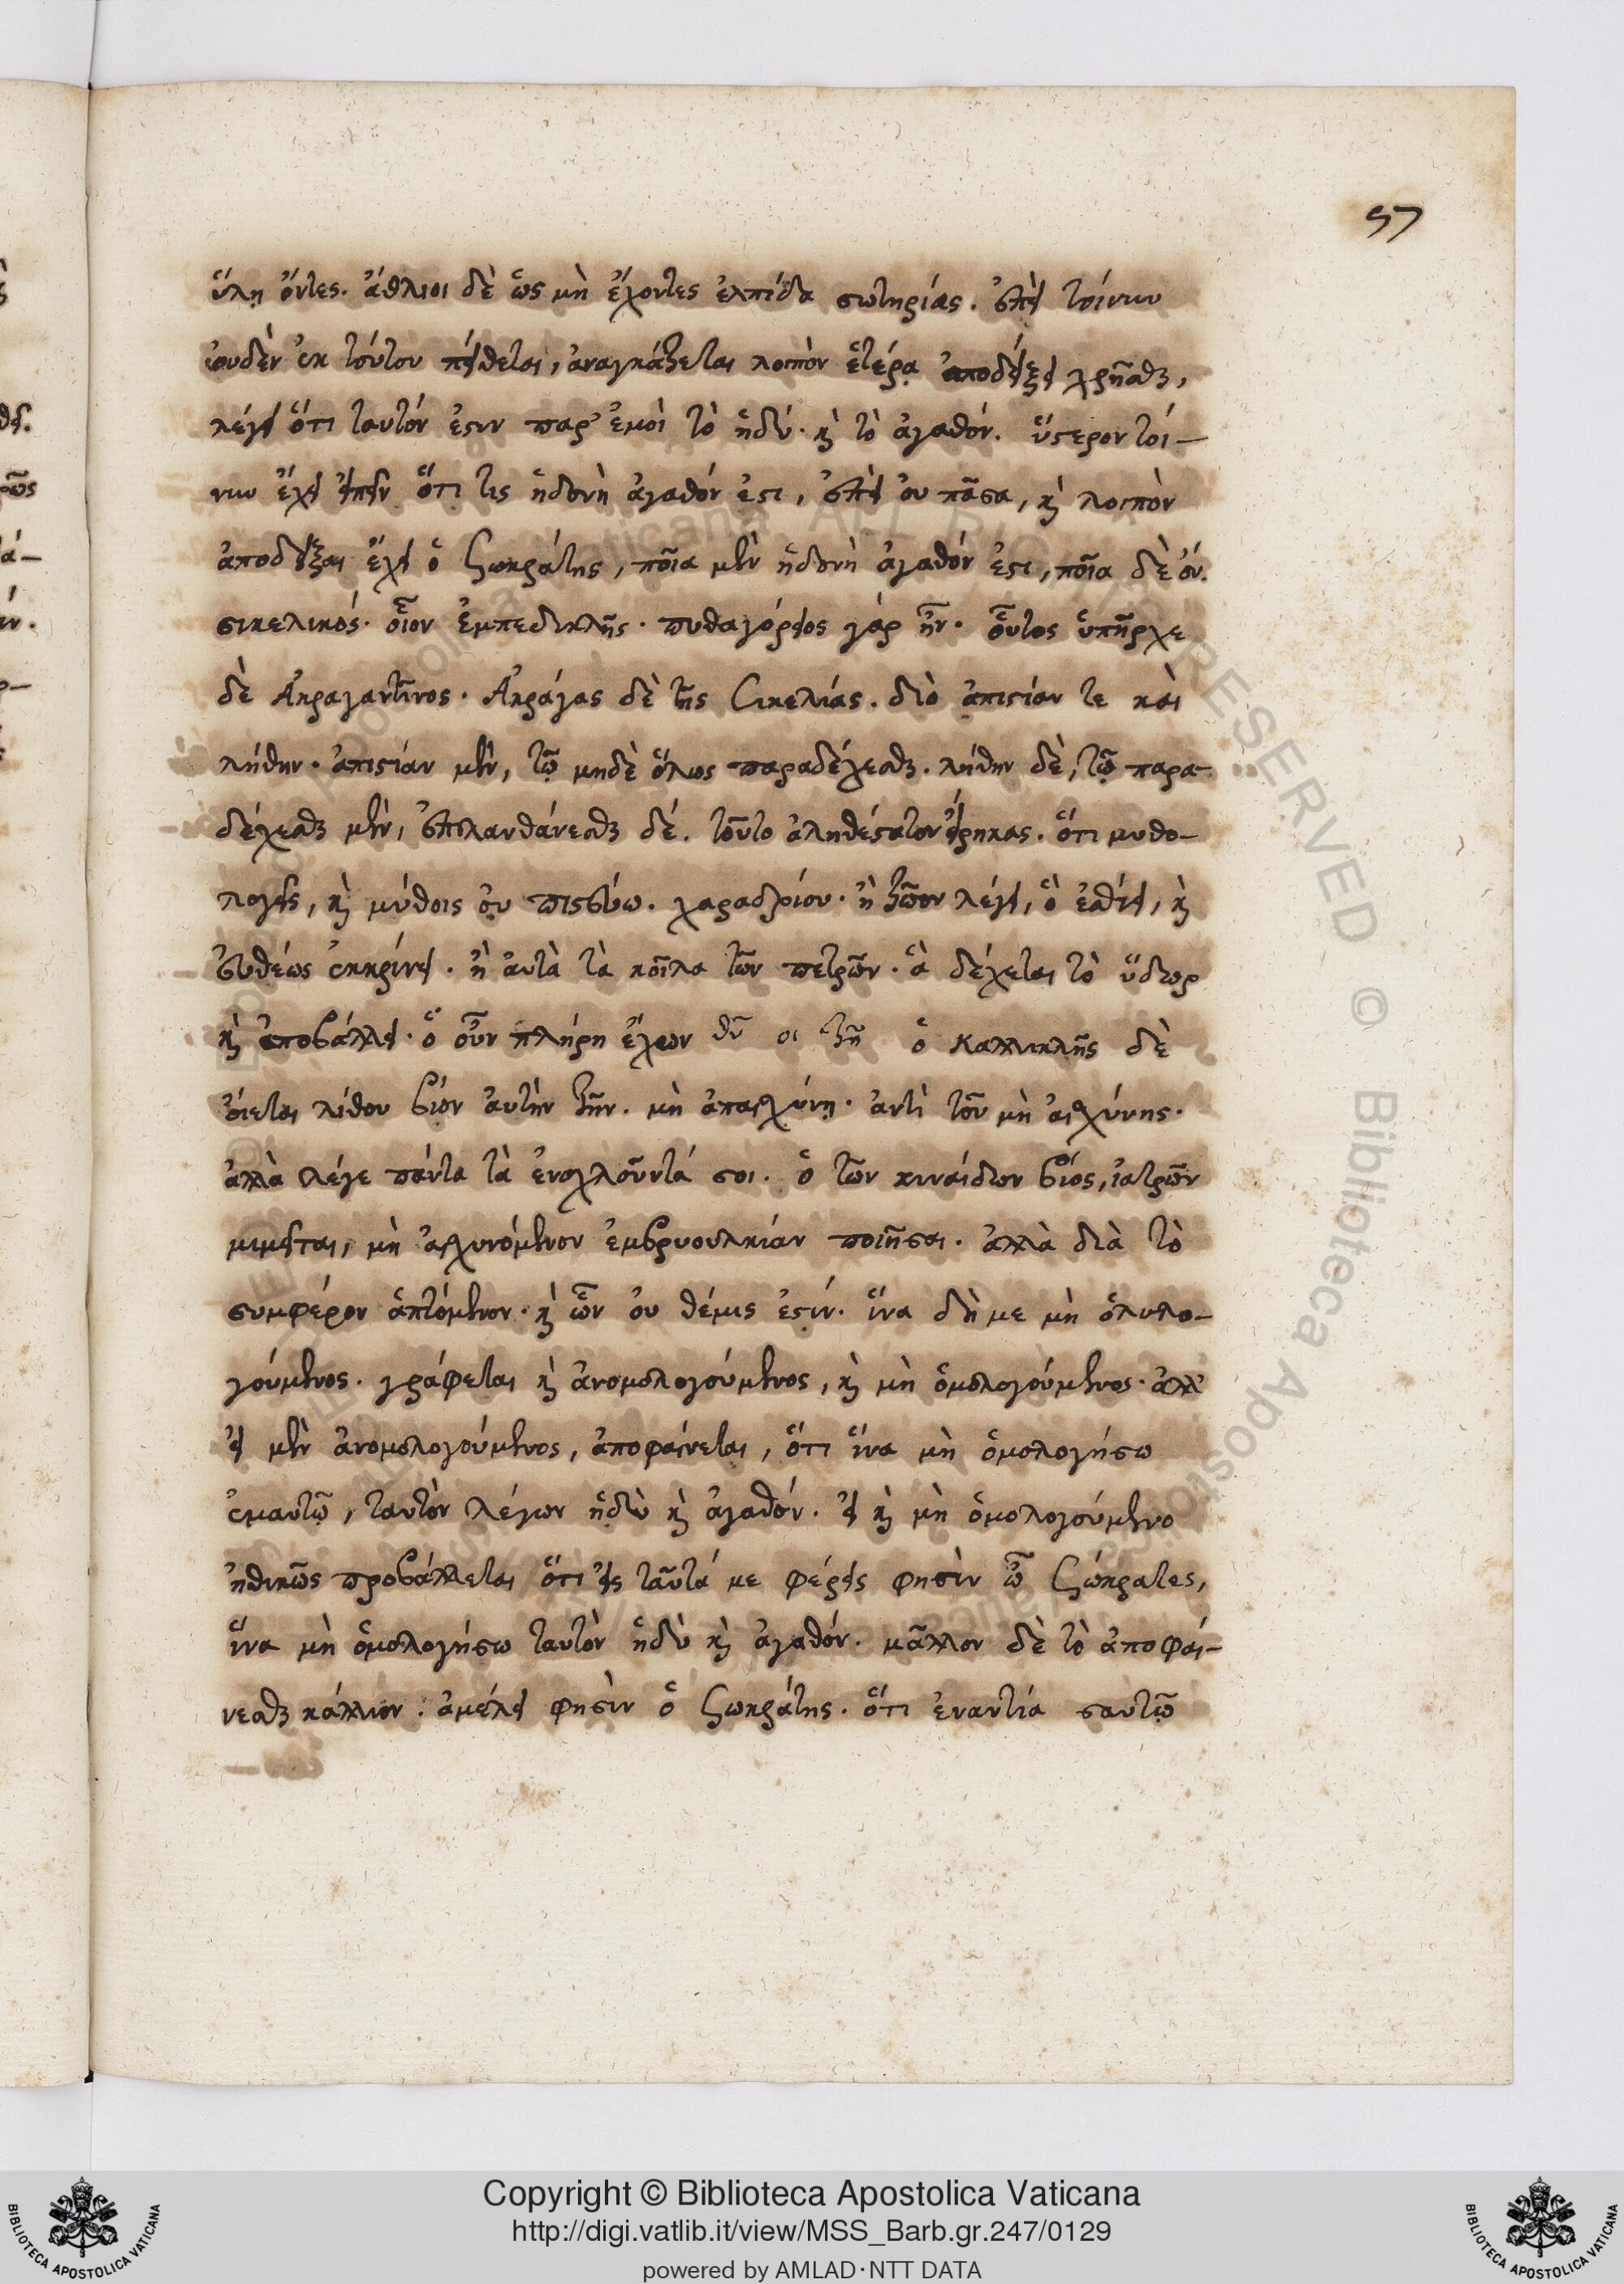 57
ὕλῃ ὄντες. ἄθλιοι δὲ ὡς μὴ ἔχοντες ἐλπίδα σωτηρίας. ἐπεὶ τοίνυν
οὐδὲν ἐκ τούτου πείθεται, ἀναγκάζεται λοιπὸν ἑτέρᾳ ἀποδείξει χρῆσθαι,
λέγει ὅτι ταυτόν ἐστιν παρ' ἐμοὶ τὸ ἡδύ. καὶ τὸ ἀγαθόν. ὕστερον τοί-
νυν ἔχει εἰπεῖν ὅτι τις ἡδονὴ ἀγαθόν ἐστι, ἐπεὶ οὐ πᾶσα, καὶ λοιπὸν
ἀποδεῖξαι ἔχει ὁ Σωκράτης, ποῖα μὲν ἡδονὴ ἀγαθόν ἐστι, ποῖα δὲ οὔ.
σικελικός. οἷον Ἐμπεδοκλῆς. πυθαγόρειος γὰρ ἦν. οὗτος ὑπῆρχε
δὲ Ἀκραγαντῖνος. Ἀκράγας δὲ τῆς Σικελίας. διὸ ἀπιστίαν τε καὶ
λήθην. ἀπιστίαν μὲν, τῷ μηδὲ ὅλως παραδέχεσθαι. λήθην δὲ, τῷ παρα-
δέχεσθαι μὲν, ἐπιλανθάνεσθαι δέ. τοῦτο ἀληθέστατον εἴρηκας. ὅτι μυθο-
λογεῖς, καὶ μύθοις οὐ πιστεύω. χαραδριού. ἢ ζῶον λέγει, ὃ ἐσθίει, καὶ
εὐθέως ἐκκρίνει. ἢ αὐτὰ τὰ κοῖλα τῶν πετρῶν. ἃ δέχεται τὸ ὕδωρ
καὶ ἀποβάλλει. ὁ οὖν πλήρη ἔχων θῦ οι ζῆ ὁ Καλλικλῆς δὲ
οἴεται λίθου βίον αὐτὴν ζῆν. μὴ ἀπαισχύνῃ. ἀντὶ τοῦ μὴ αἰσχύνης.
ἀλλὰ λέγε πάντα τὰ ἐνοχλοῦντά σοι. ὁ τῶν κιναίδων βίος, ἰατρῶν
μιμεῖται, μὴ αἰσχυνόμενον ἐμβρυουλκίαν ποιῆσαι. ἀλλὰ διὰ τὸ
συμφέρον ἁπτόμενον. καὶ ὧν οὐ θέμις ἐστίν. ἵνα δή με μὴ ὁλυλο-
γούμενος. γράφεται καὶ ἀνομολογούμενος, καὶ μὴ ὁμολογούμενος. ἀλλ'
εἰ μὲν ἀνομολογούμενος, ἀποφαίνεται, ὅτι ἵνα μὴ ὁμολογήσω
ἐμαυτῷ, ταυτὸν λέγων ἡδὺ καὶ ἀγαθόν. εἰ καὶ μὴ ὁμολογούμενο
ἠθικῶς προβάλλεται ὅτι εἰς ταῦτά με φέρεις φησὶν ὦ Σώκρατες,
ἵνα μὴ ὁμολογήσω ταυτὸν ἡδὺ καὶ ἀγαθόν. μᾶλλον δὲ τὸ ἀποφαί-
νεσθαι κάλλιον. ἀμέλει φησὶν ὁ Σωκράτης. ὅτι ἐναντία σαυτῷ
Copyright © Biblioteca Apostolica Vaticana
http://digi.vatlib.it/view/MSS_Barb.gr.247/0129
powered by AMLAD·NTT DATA